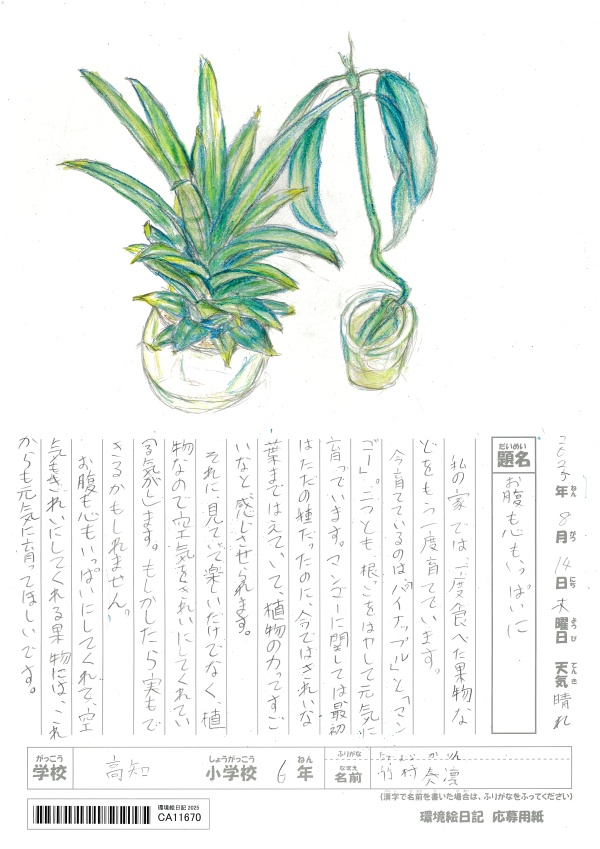 2025年 8月 14日 木曜日 天気 晴れ
ねん がつ にち ようび てんき
だいめい
題名
お腹も心もいっぱいに
私の家では、一度食べた果物な
どをもう一度育てています。
今育てているのは「パイナップル」と「マン
ゴー」。二つとも、根っこをはやして元気に
育っています。マンゴーに関しては最初
はただの種だったのに、今ではきれいな
葉まではえていて、植物の力ってすご
いなと感じさせられます。
それに、見ていて楽しいだけでなく、植
物なので空気をきれいにしてくれてい
る気がします。もしかしたら実もで
きるかもしれません。
お腹も心もいっぱいにしてくれて、空
気もきれいにしてくれる果物には、これ
からも元気に育ってほしいです。
がっこう しょうがっこう ねん ふりがな たけむら かりん
学校 高知 小学校 6年 なまえ 名前 竹村奏凛
(漢字で名前を書いた場合は、ふりがなをふってください)
環境絵日記 2025
CA11670
環境絵日記 応募用紙